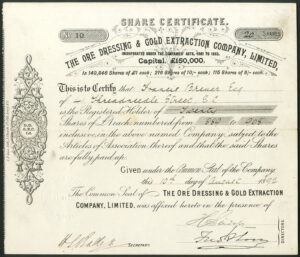 SHARE CERTIFICATE.
No. 10
20 SHARES
THE ORE DRESSING & GOLD EXTRACTION COMPANY, LIMITED.
INCORPORATED UNDER THE COMPANIES' ACTS, 1862 TO 1890.
Capital, £150,000.
In 149,646 Shares of £1 each; 276 Shares of 10/- each; 115 Shares of 8/- each.
This is to Certify that Brewer Esq
of Threadneedle Street E.C.
is the Registered Holder of Twenty
Shares of £1 each, numbered from to
inclusive, in the above named Company, subject to the
Articles of Association thereof and that the said Shares
are fully paid up.
Given under the Common Seal of the Company
this 10th day of August
The Common Seal of THE ORE DRESSING & GOLD EXTRACTION
COMPANY, LIMITED, was affixed hereto in the presence of
SECRETARY.
DIRECTORS.